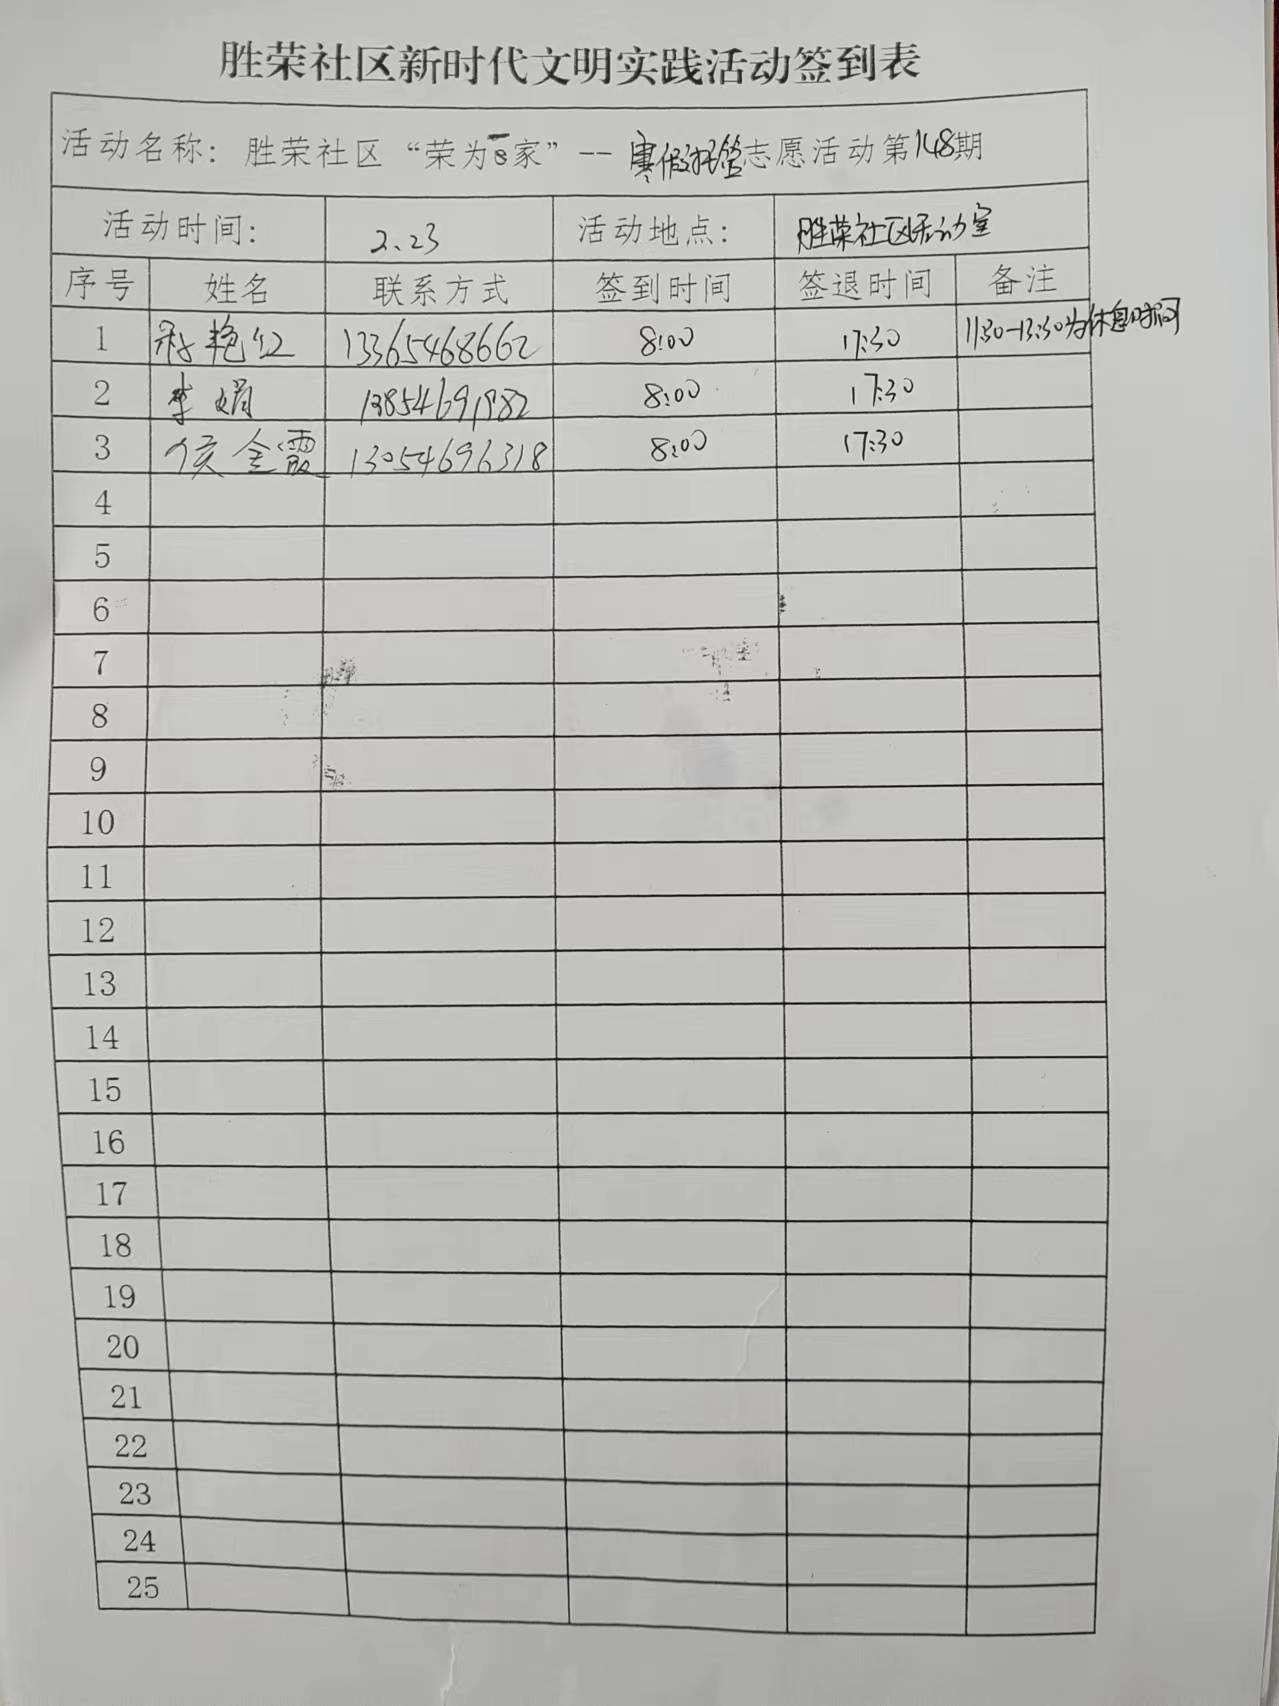 胜荣社区新时代文明实践活动签到表
活动名称：胜荣社区“荣为一家”--寒假托管志愿活动第148期
活动时间： 2.23 活动地点： 胜荣社区活动室
序号 姓名 联系方式 签到时间 签退时间 备注
1 艳红 13365468662 8:00 17:30 11:30-13:30为休息时间
2 李娟 13854691982 8:00 17:30
3 侯金霞 13054696318 8:00 17:30
4
5
6
7
8
9
10
11
12
13
14
15
16
17
18
19
20
21
22
23
24
25